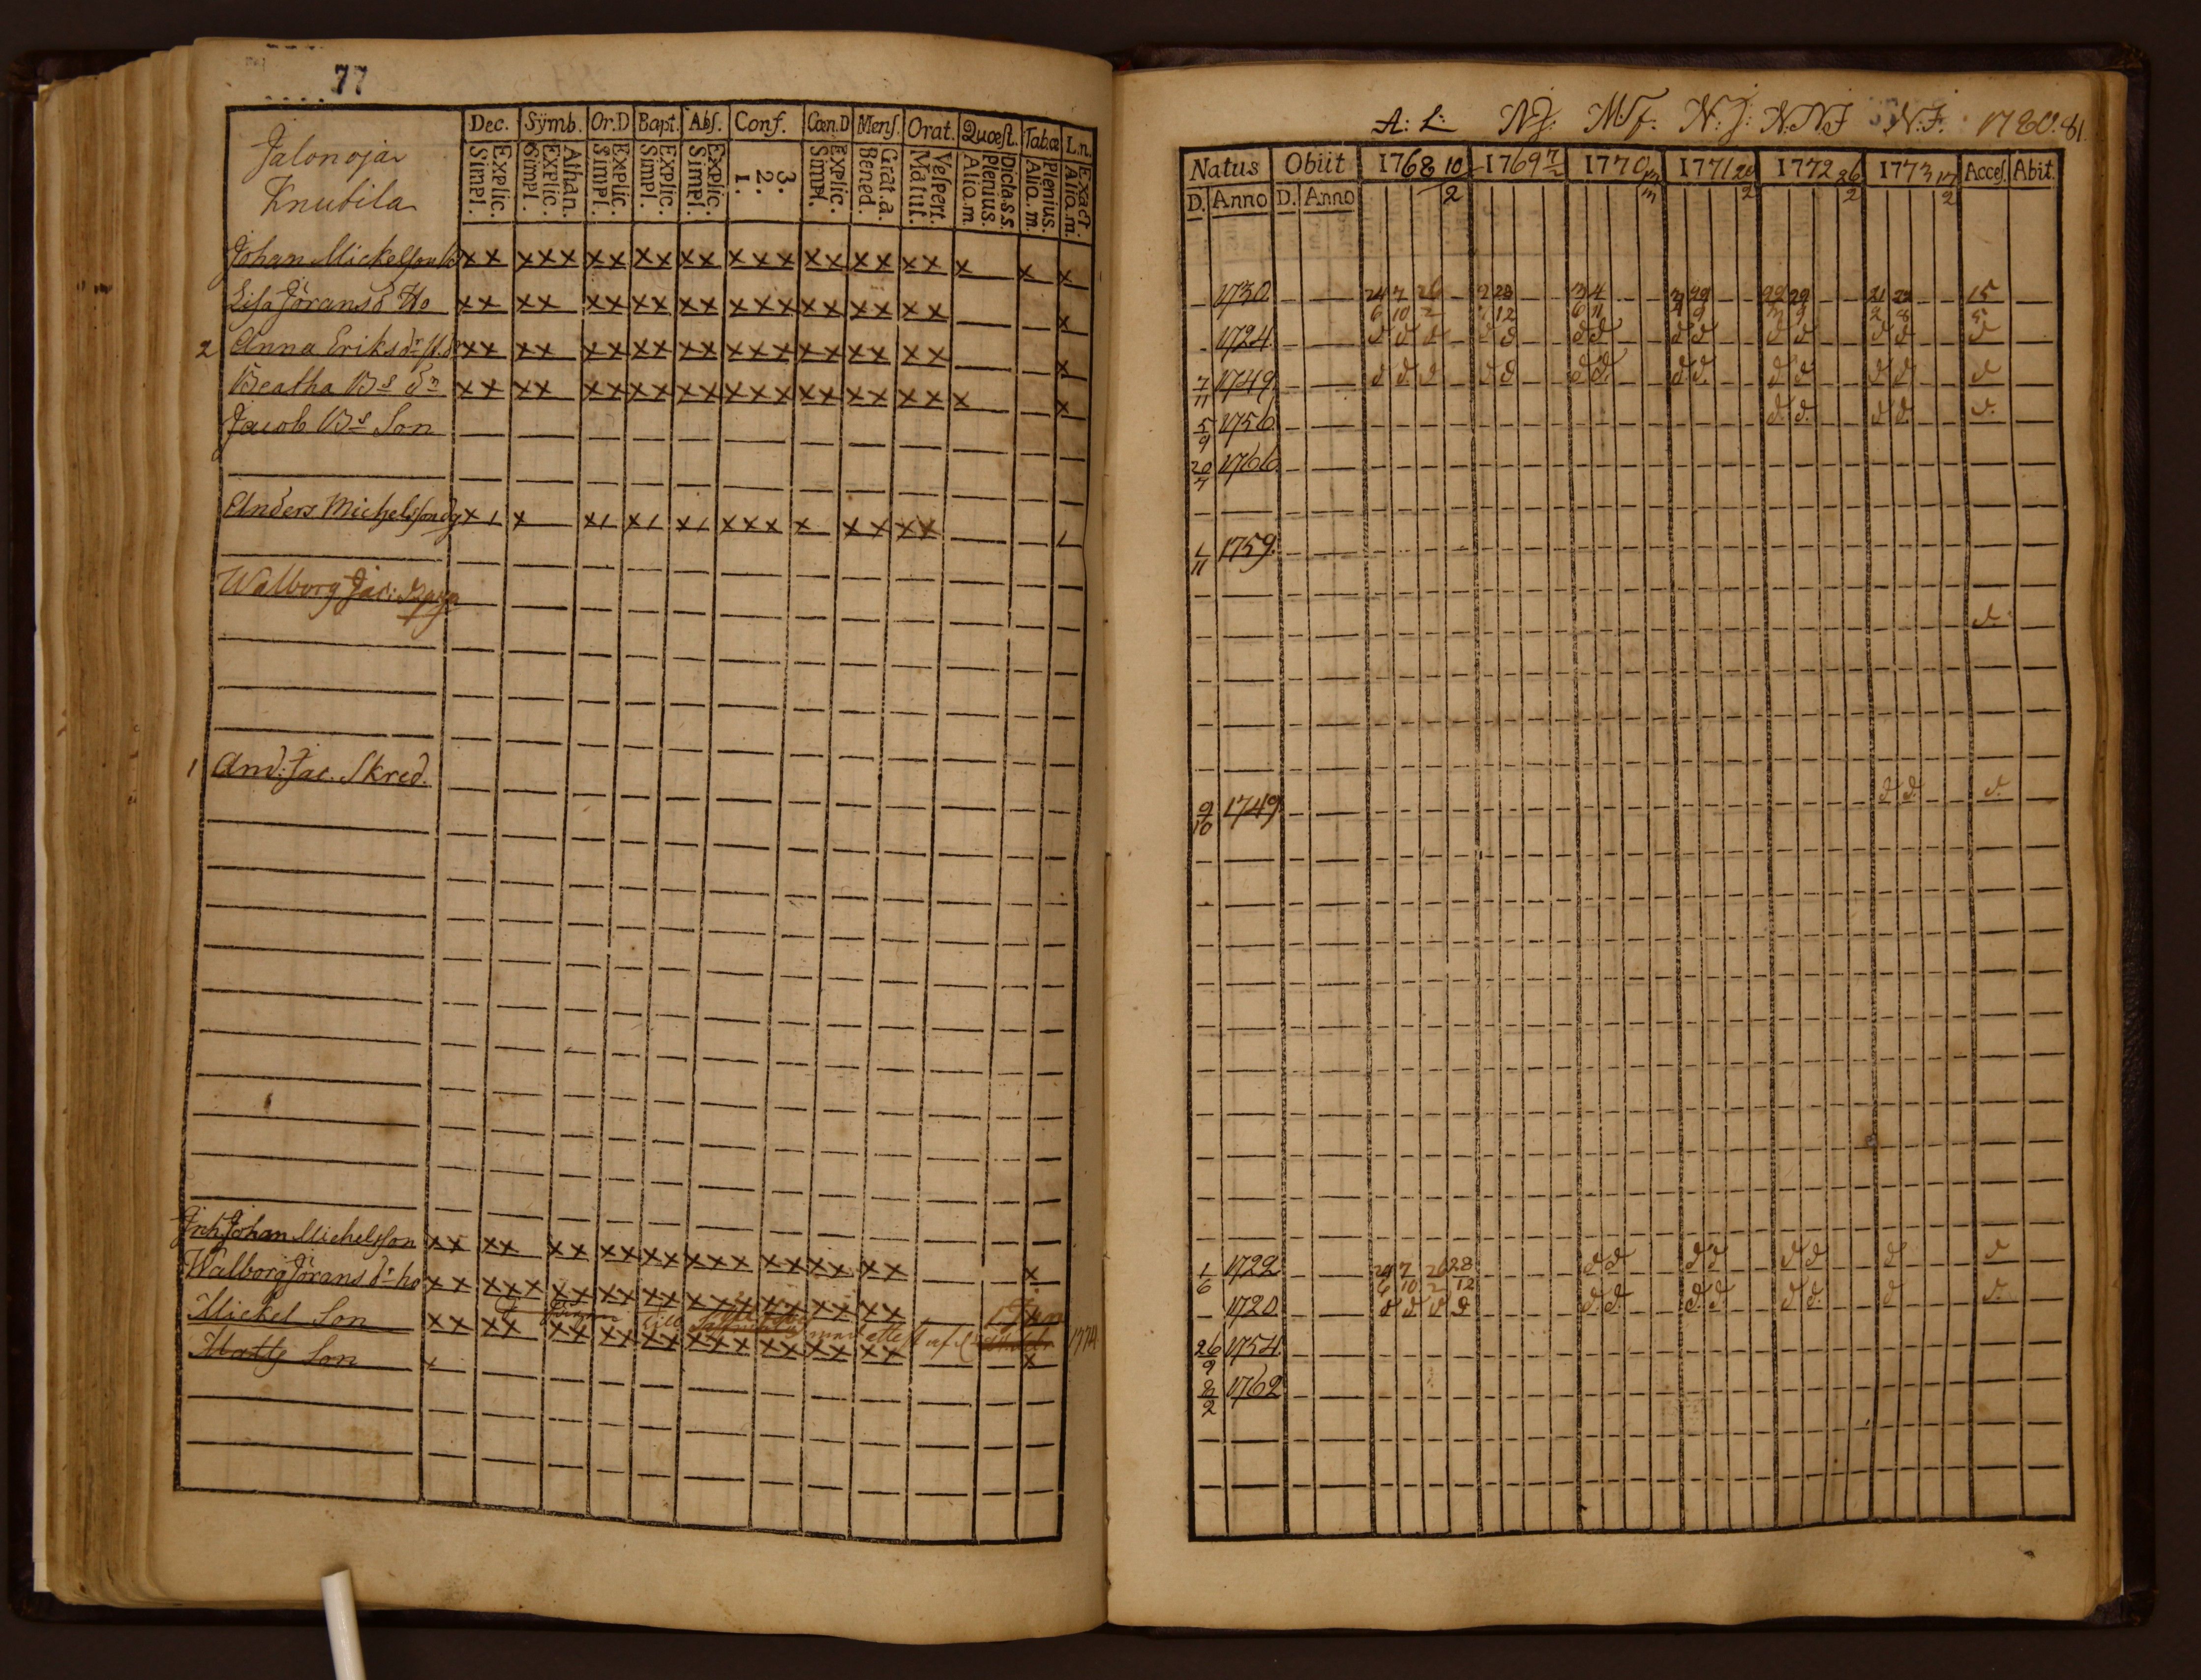 77
Jalonoja
Knubila
Dec. Sÿmb. Or.D Bapt. Abſ. Conf. Cœn.D Menſ. Orat. Quœſt. Tab.œ L.n.
Explic. Simpl. Athan. Explic. Simpl. Explic. Simpl. Explic. Simpl. Explic. Simpl. 3. 2. 1. Explic. Simpl. Grat.a. Bened. Veſpert. Matut. Dicta.s.s. Plenius. Alio.m. Plenius. Alio.m. Exact. Alio.m.
Johan Mickelsson x x x x x x x x x x x x x x x x x x x x x x x
Lisa Jörans d Ho x x x x x x x x x x x x x x x x x x x x
2 Anna Eriks dr x x x x x x x x x x x x x x x x x x x x
Beatha Bs dr x x x x x x x x x x x x x x x x x x x x x
Jacob Bs Son
Anders Michelsson x x x x x x x x x x x x x
Walborg Jac: Piga
1 And: Jac. Skred.
Inh Johan Michelsson x x x x x x x x x x x x x x x x x x x x
Walborg Jörans dr ho x x x x x x x x x x x x x x x x x x x x
Mickel Son x x x x x x x x x x x x x x x x x x x
Matts Son 1774
A: L: N.J: N.J: N.NJ N.J. 1780. 81.
Natus Obiit 1768 10/2 1769 7/2 1770 1771 20/2 1772 26/2 1773 17/2 Acceſ. Abit.
D. Anno D. Anno
1730 24/6 7/10 26/2 28/12 3/6 4/11 29/9 22/3 29/9 21/2 22/8 15/5
1724 d d d d d d d d d d d d d d
7/11 1749 d d d d d d d d d d d d d d
5/9 1756 d. d. d d. d.
20/7 1766
1/11 1759
d.
9/10 1749 d d. d.
1/6 1722 24/6 7/10 26/2 28/12 d d d d d d d d
1720 d d d d d. d. d. d. d d. d d.
26/9 1754
8/2 1762